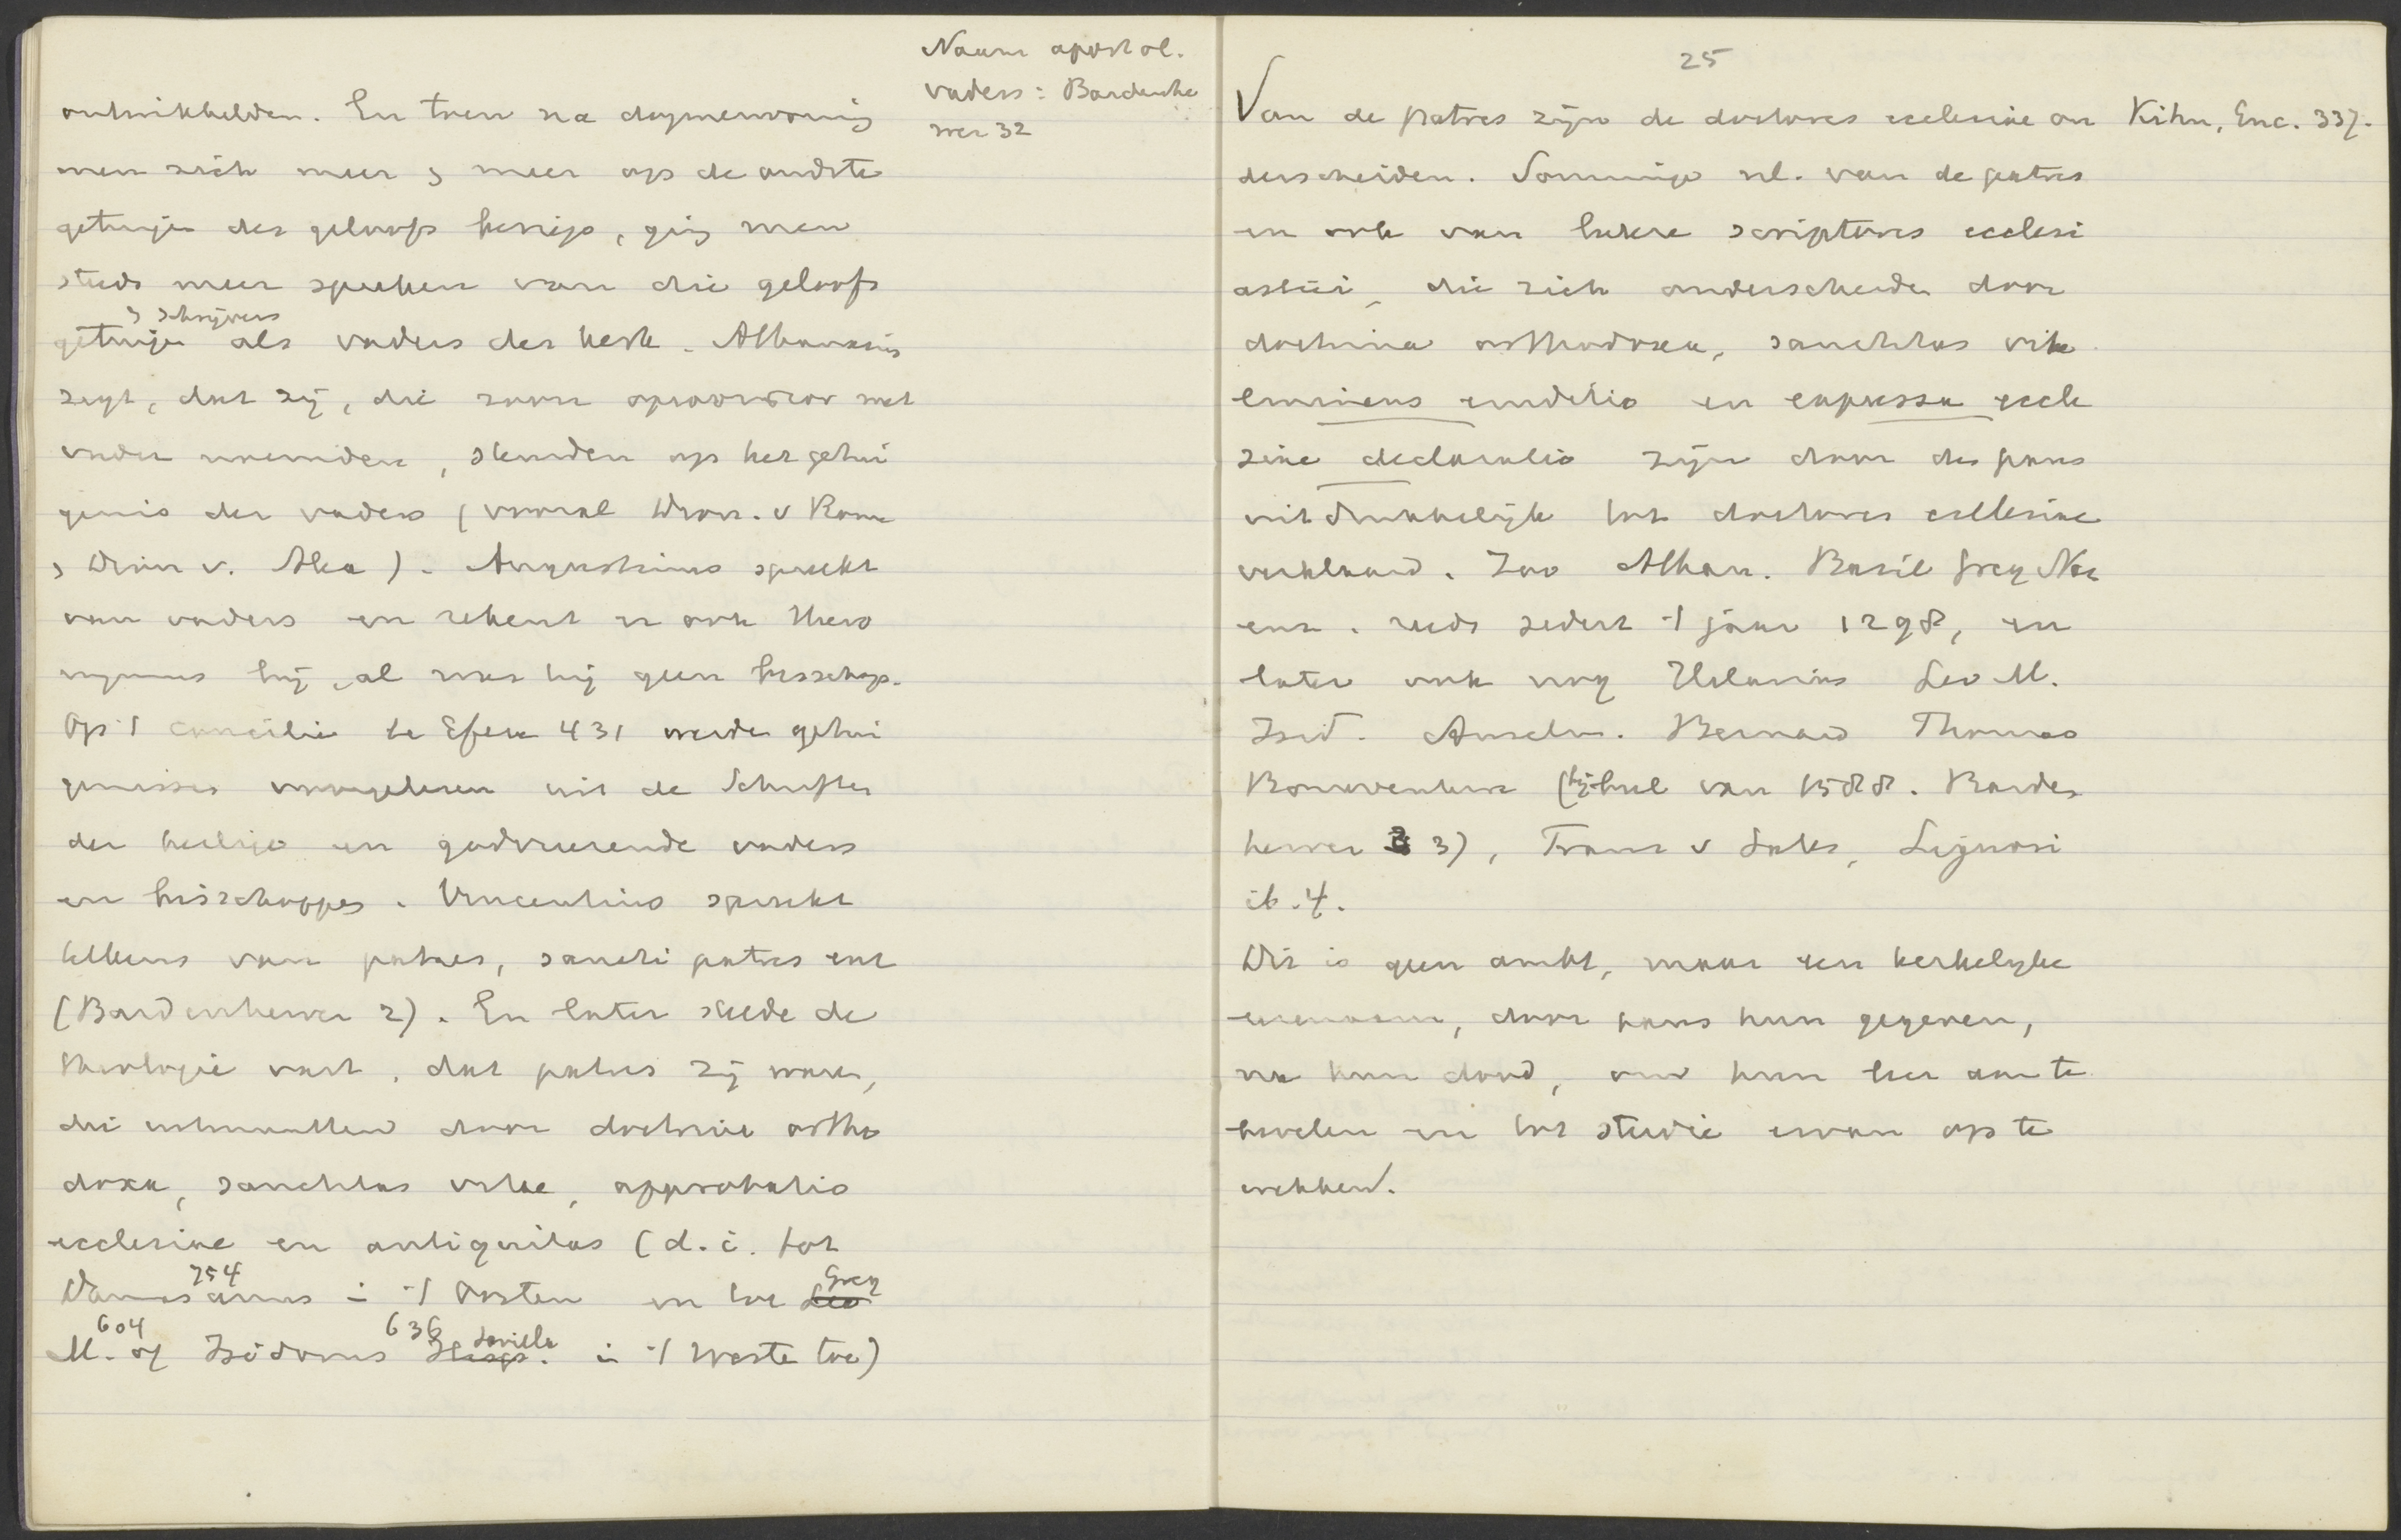 Naam apostol.
vaders: Bardenhe
wer 32
ontwikkelden. En toen na dogmenvorming
men zich meer & meer op de oudste
getuigen des geloofs beriep, ging men
steeds meer spreken van die geloofs
& schrijvers
getuigen als vaders der kerk. Athanasius
zegt, dat zij, die zoon ὁμοουσιον met
vader noemden, steunden op het getui
genis der vaders (vooral Dion. v Rome
& Dion v. Alex). Augustinus spreekt
van vaders en rekent er ook Hiero
nymus bij, al was hij geen bisschop.
Op 't concilie te Efeze 431 werden getui
genissen voorgelezen uit de Schriften
der heilige en godvreezende vaders
en bisschoppen. Vincentius spreekt
telkens van patres, sancti patres enz
(Bardenhewer 2). En later stelde de
theologie vast, dat patres zij waren,
die uitmuntten door doctrina ortho
doxa, sanctitas vitae, approbatio
ecclesiae en antiquitas (d.i. tot
754
Damascenus in 't Oosten en tot Leo Greg
604 636 Sevilla
M. of Isidorus Hisp. in 't Westen toe)
25
Van de patres zijn de doctores ecclesiae on
Kihn, Enc. 337.
derscheiden. Sommige nl. van de patres
en ook van latere scriptores ecclesi
astici, die zich onderscheiden door
doctrina orthodoxa, sanctitas vitae
eminens eruditio en expressa eccle
siae declaratio zijn door den paus
uitdrukkelijk tot doctores ecclesiae
verklaard. Zoo Athan. Basil Greg Naz
enz. reeds sedert 't jaar 1298, en
later ook nog Hilarius Leo M.
Isid. Anselm. Bernard Thomas
Bonaventura (bij bul van 1588. Barden
hewer 3), Frans v Sales, Liguori
ib. 4.
Dit is geen ambt, maar een kerkelijke
eerenaam, door paus hun gegeven,
na hun dood, om hun leer aan te
bevelen en tot studie ervan op te
wekken.